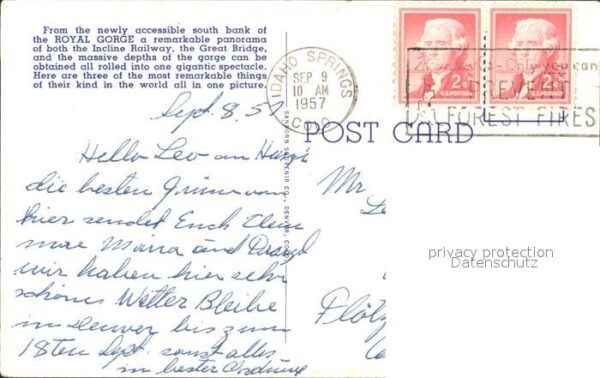 From the newly accessible south bank of
the ROYAL GORGE a remarkable panorama
of both the Incline Railway, the Great Bridge,
and the massive depths of the gorge can be
obtained all rolled into one gigantic spectacle.
Here are three of the most remarkable things
of their kind in the world all in one picture.
IDAHO SPRINGS
SEP 9
10 AM
1957
COLO
2¢ 2¢
U.S. POSTAGE U.S. POSTAGE
Only you can
PREVENT
FOREST FIRES
POST CARD
SANBORN SOUVENIR CO., DENVER, COLO.
Sept. 8. 57
Hello Leo
die besten Grüsse von
hier sendet Euch
und
wir haben hier sehr
schönes Wetter Bleibe
in Denver bis zum
18ten Sept. sonst alles
in bester Ordnung
Mr
privacy protection
Datenschutz